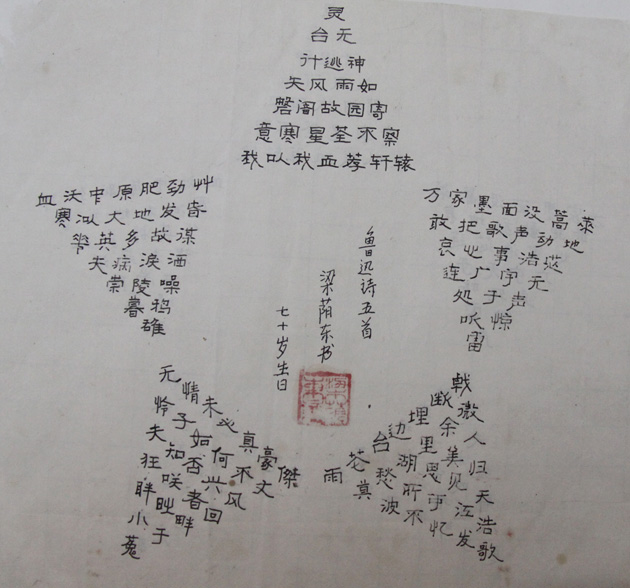 灵
台无
计逃神
矢风雨如
磐闇故园寄
意寒星荃不察
我以我血荐轩辕
血沃中原肥劲艸
寒凝大地发春
华英多故谋
夫病泪洒
崇陵噪
暮鸦
雄
万家墨面没蒿莱
敢把歌声动地
哀心事浩茫
连广宇无
处于声
听惊
雷
鲁迅诗五首
梁荫东书
七十岁生日
无情未必真豪傑
怜子如何不丈
夫知否兴风
狂咲者回
眸时
小于
菟
雨花台边埋断戟
莫愁湖里余微
波所思美人
不可见归
忆江天
发浩
歌